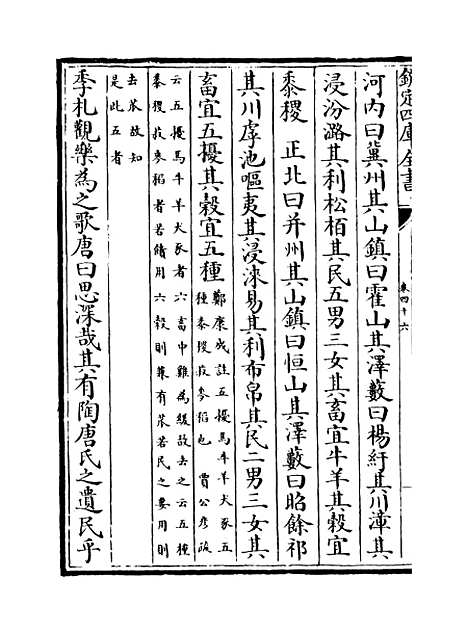 欽定四庫全書
卷四十六
河内曰冀州其山鎮曰霍山其澤藪曰楊紆其川漳其
浸汾潞其利松栢其民五男三女其畜宜牛羊其榖宜
黍稷 正北曰并州其山鎮曰恒山其澤藪曰昭餘祁
其川虖池嘔夷其浸淶易其利布帛其民二男三女其
畜宜五擾其榖宜五種
鄭康成註五擾馬牛羊犬豕五
種黍稷菽麥稻也 賈公彦疏
云五擾馬牛羊犬豕者六畜中雞為緩故去之云五種
黍稷菽麥稻者若饍用六榖則兼有苽若民之要用則
去苽故知
是此五者
季札觀樂為之歌唐曰思深哉其有陶唐氏之遺民乎